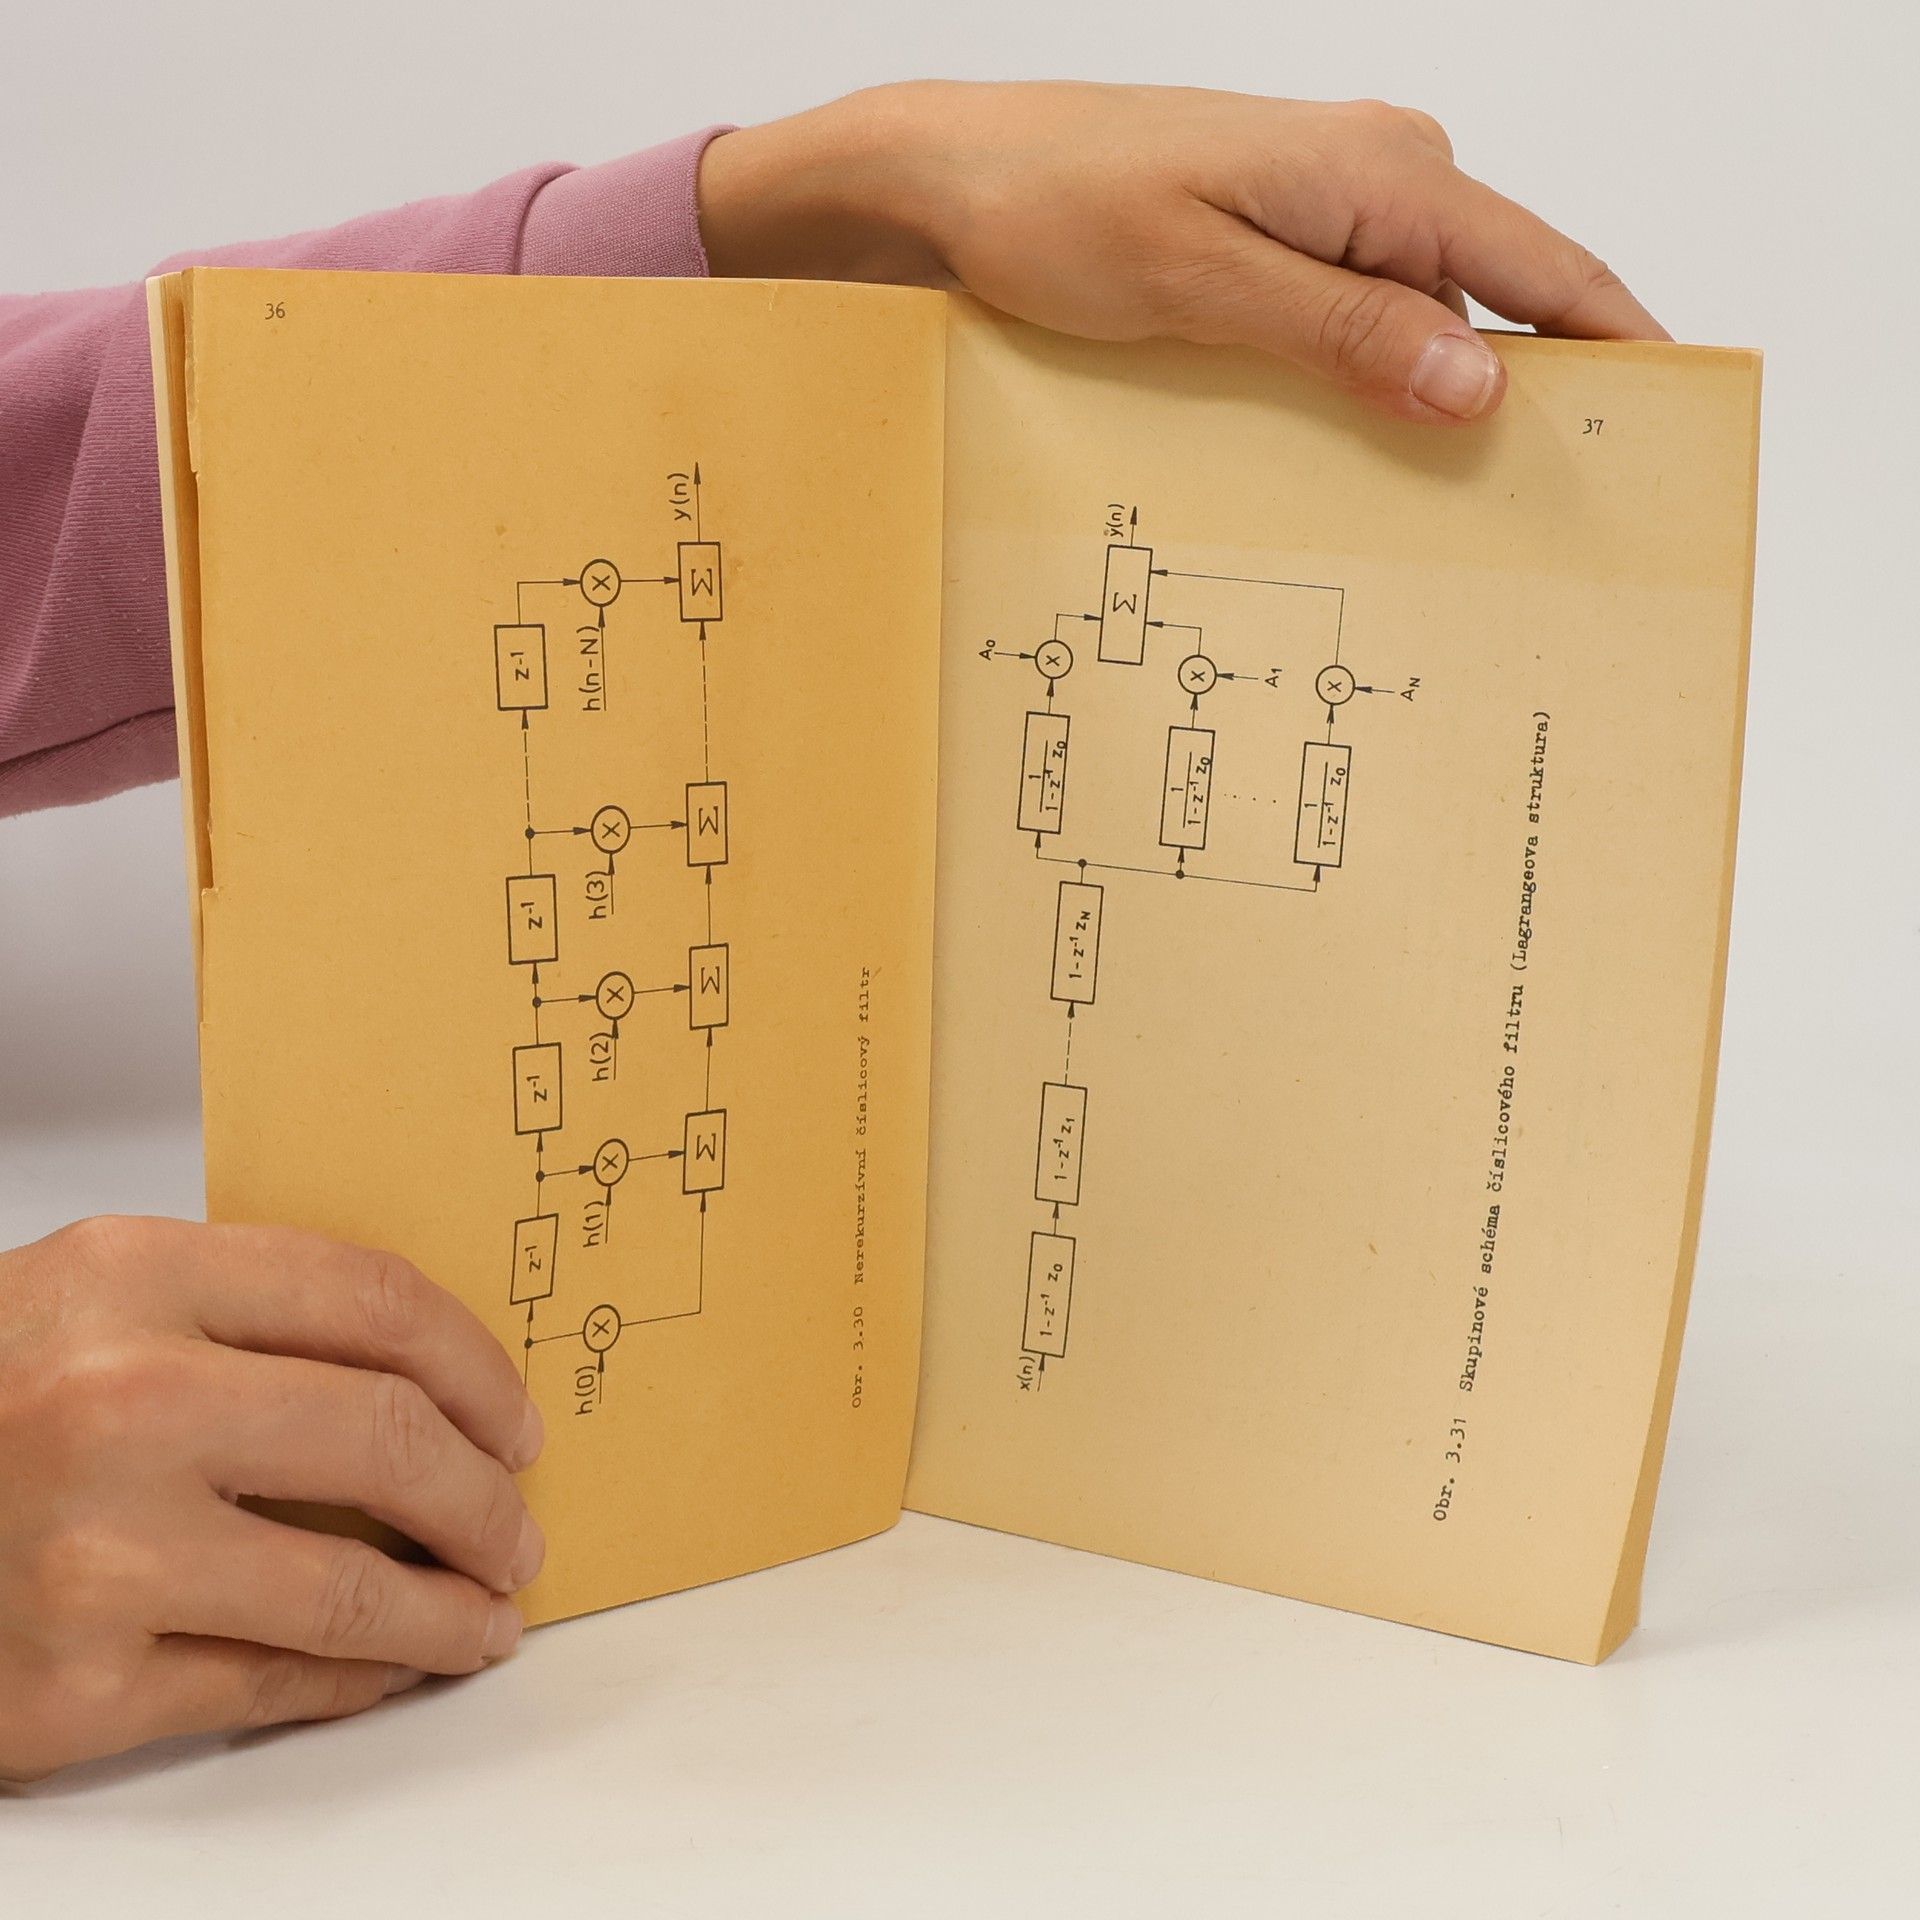 36
z⁻¹ z⁻¹ z⁻¹ z⁻¹
h(0) X h(1) X h(2) X h(3) X h(n-N) X
Σ Σ Σ Σ y(n)
Obr. 3.30 Nerekurzívní číslicový filtr
37
A₀
x(n) 1-z⁻¹ z₀ 1-z⁻¹ z₁ 1-z⁻¹ z_N
1 / 1-z⁻¹ z₀ X
Σ y(n)
1 / 1-z⁻¹ z₀ X
A₁
1 / 1-z⁻¹ z₀ X
A_N
Obr. 3.31 Skupinové schéma číslicového filtru (Lagrangeova struktura)